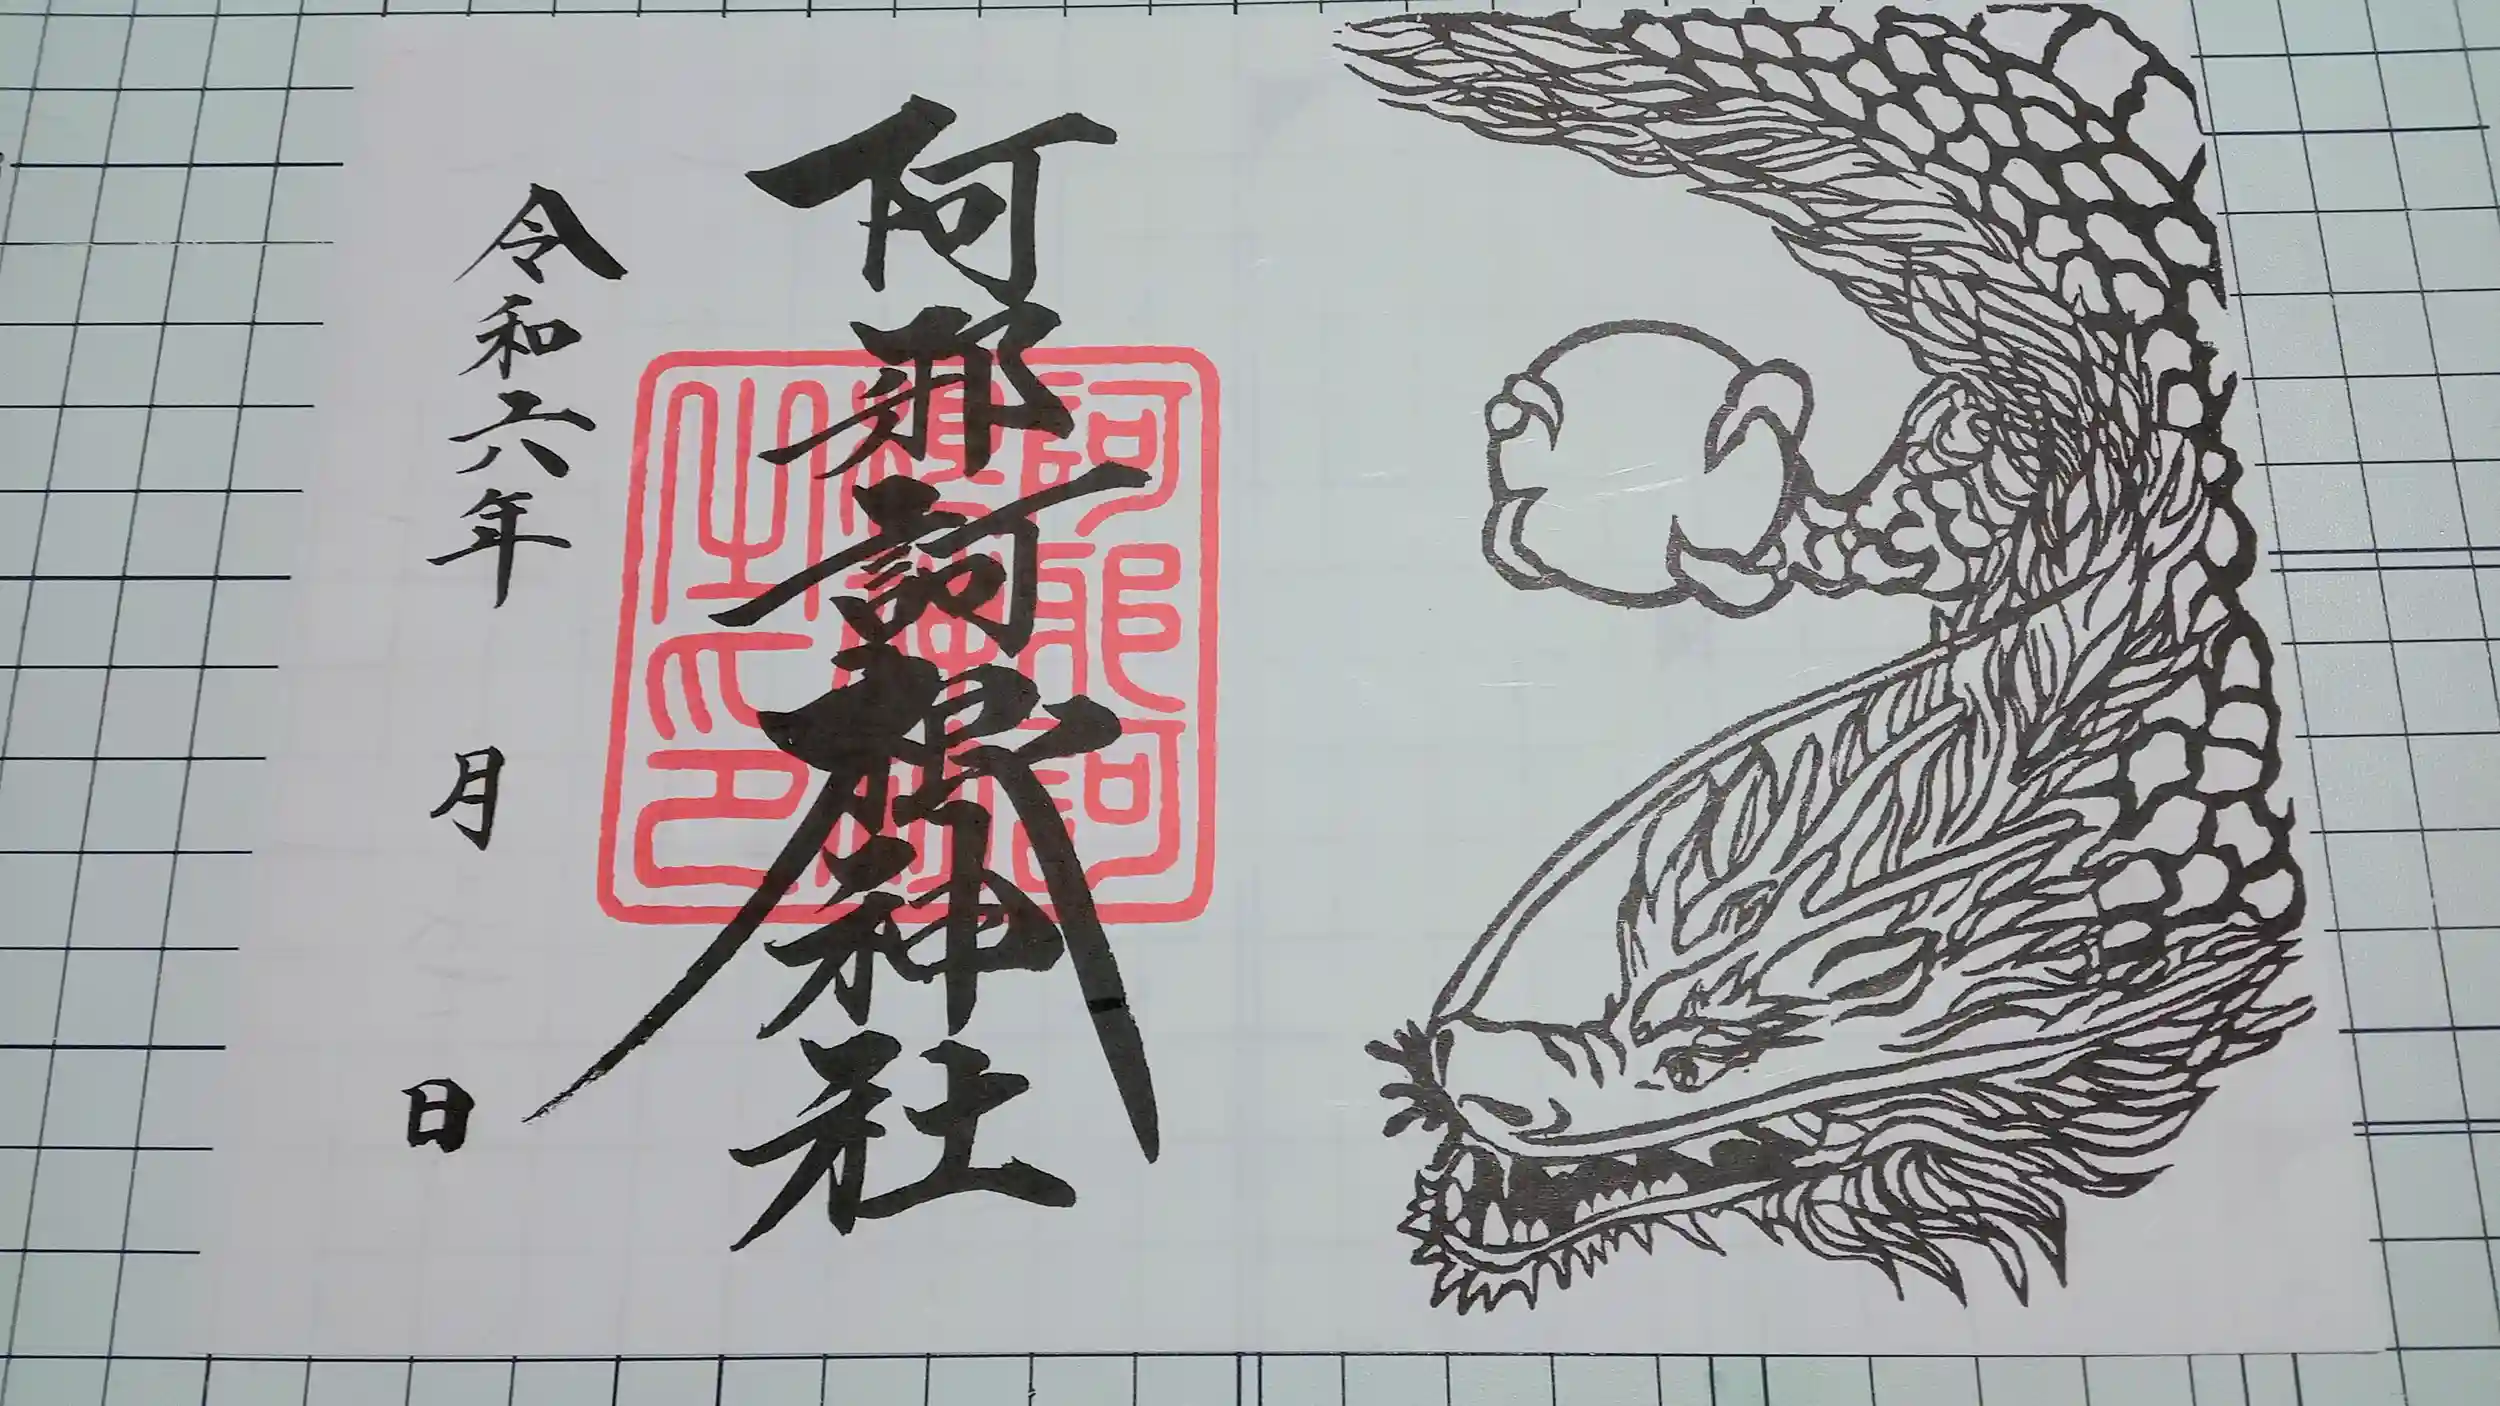 阿邪訶根神社
阿邪訶
根神社
之印
令和六年 月 日